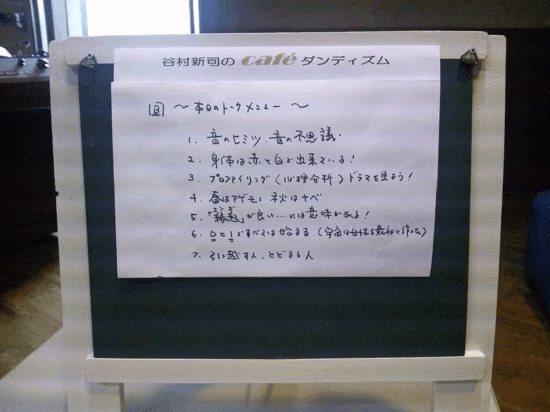 谷村新司の café ダンディズム
～本日のトークメニュー～
1. 音のヒミツ、音の不思議。
2. 身体は赤と白で出来ている!
3. プロファイリング(心理分析)ドラマを見よう!
4. 春はアゲモノ 秋はナベ
5. 「縁起」が良い…には意味がある!
6. 0と1ですべては始まる (宇宙は女性を最初に作った)
7. 引っ越す人、とどまる人